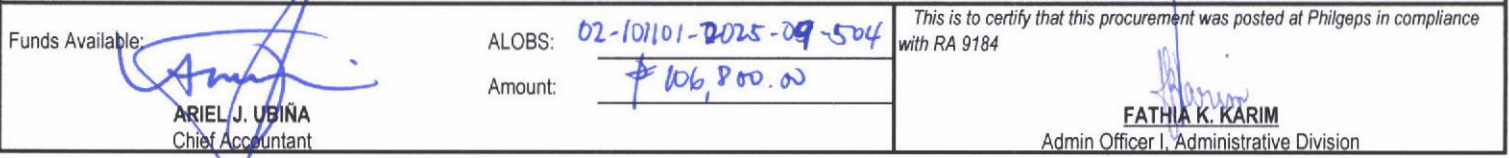 Funds Available:
ARIEL J. UBIÑA
Chief Accountant
ALOBS: 02-101101-2025-09-504
Amount: ₱ 106,800.00
This is to certify that this procurement was posted at Philgeps in compliance
with RA 9184
FATHIA K. KARIM
Admin Officer I, Administrative Division